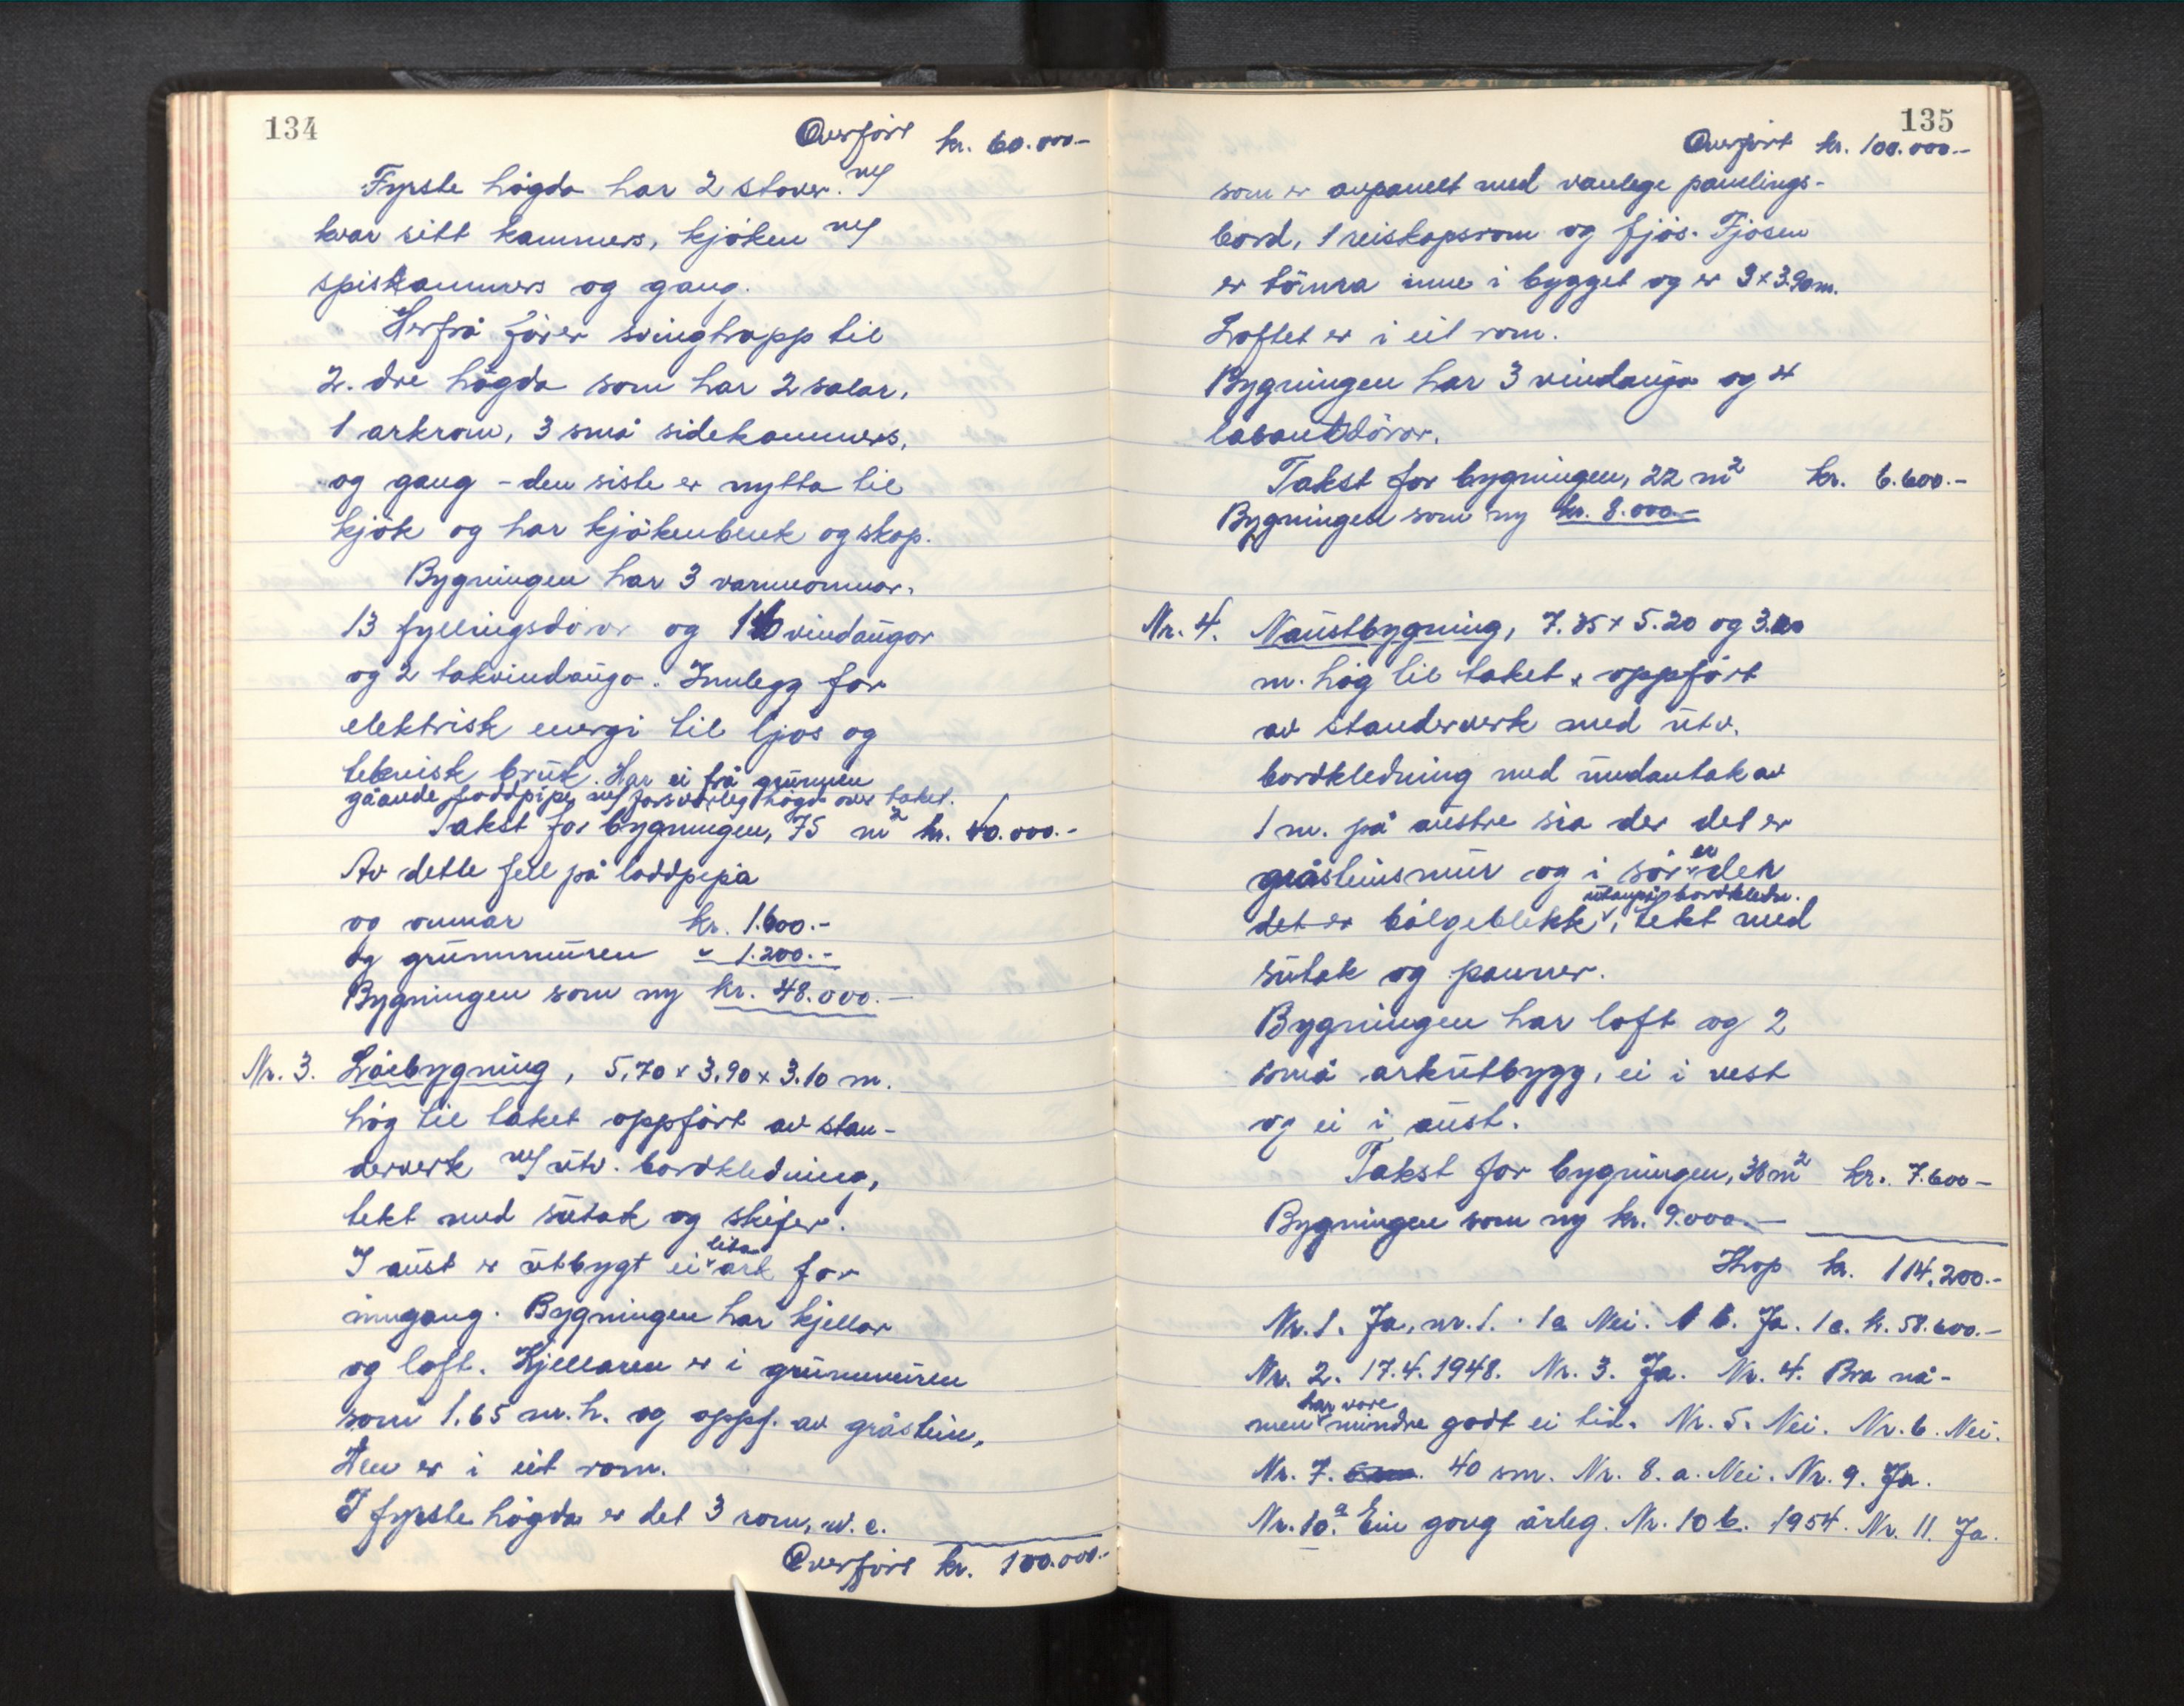 134
Overført kr. 60.000.-
Fyrste högda har 2 stover. m/
kvar sitt kammers, kjöken m/
spiskammers og gang.
Herfrå förer svingtrapp til
2. dre högda som har 2 salar,
1 arkrom, 3 små sidekammers,
og gang - den siste er nytta til
kjök og har kjökenbenk og skap.
Bygningen har 3 varmeomnar,
13 fyllingsdörar og 16 vindaugor
og 2 takvindaugo. Innlegg for
elektrisk energi til ljos og
teknisk bruk. Har ei frå grunnen
gåande loddpipe m/ forsvarleg högd over taket.
Takst for bygningen, 75 m² kr. 40.000.-
Av dette fell på loddpipa
og omnar kr. 1.600.-
og grunnmuren " 1.200.-
Bygningen som ny kr. 48.000.-
Nr. 3. Löebygning, 5,70 x 3,90 x 3.10 m.
hög til taket oppfört av stan-
derverk m/ utv. bordkledning,
tekt med sutak og skifer.
I aust er utbygt ei lita ark for
inngang. Bygningen har kjellar
og loft. Kjellaren er i grunnmuren
som 1.65 m. h. og oppf. av gråstein,
Den er i eit rom.
I fyrste högda er det 3 rom, w.c.
Overfört kr. 100.000.-
135
Overfört kr. 100.000.-
som er avpanelt med vanlege panelings-
bord, 1 reiskapsrom og fjös. Fjösen
er tömra inne i bygget og er 3 x 3.90 m.
Loftet er i eit rom.
Bygningen har 3 vindaugo og 4
labankdörar.
Takst for bygningen, 22 m² kr. 6.600.-
Bygningen som ny kr. 8.000.-
Nr. 4. Naustbygning, 7.35 x 5.20 og 3.20
m. hög til taket, oppfört
av standerverk med utv.
bordkledning med undantak av
1 m. på austre sia der det er
gråsteinsmur og i sör er den
det er bölgeblekk utanpå bordkledn., tekt med
sutak og panner.
Bygningen har loft og 2
små arkutbygg, ei i vest
og ei i aust.
Takst for bygningen, 38 m² kr. 7.600-
Bygningen som ny kr. 9.000.-
Ihop kr. 114.200.-
Nr. 1. Ja, nr. 1. 1a Nei. 1 b. Ja. 1c. k. 58.600.-
Nr. 2. 17.4.1948. Nr. 3. Ja. Nr. 4. Bra nå-
men har vore mindre godt ei tid. Nr. 5. Nei. Nr. 6. Nei.
Nr. 7. 40 sm. Nr. 8. a. Nei. Nr. 9. Ja.
Nr. 10.a Ein gong årleg. Nr. 10 b. 1954. Nr. 11. Ja.